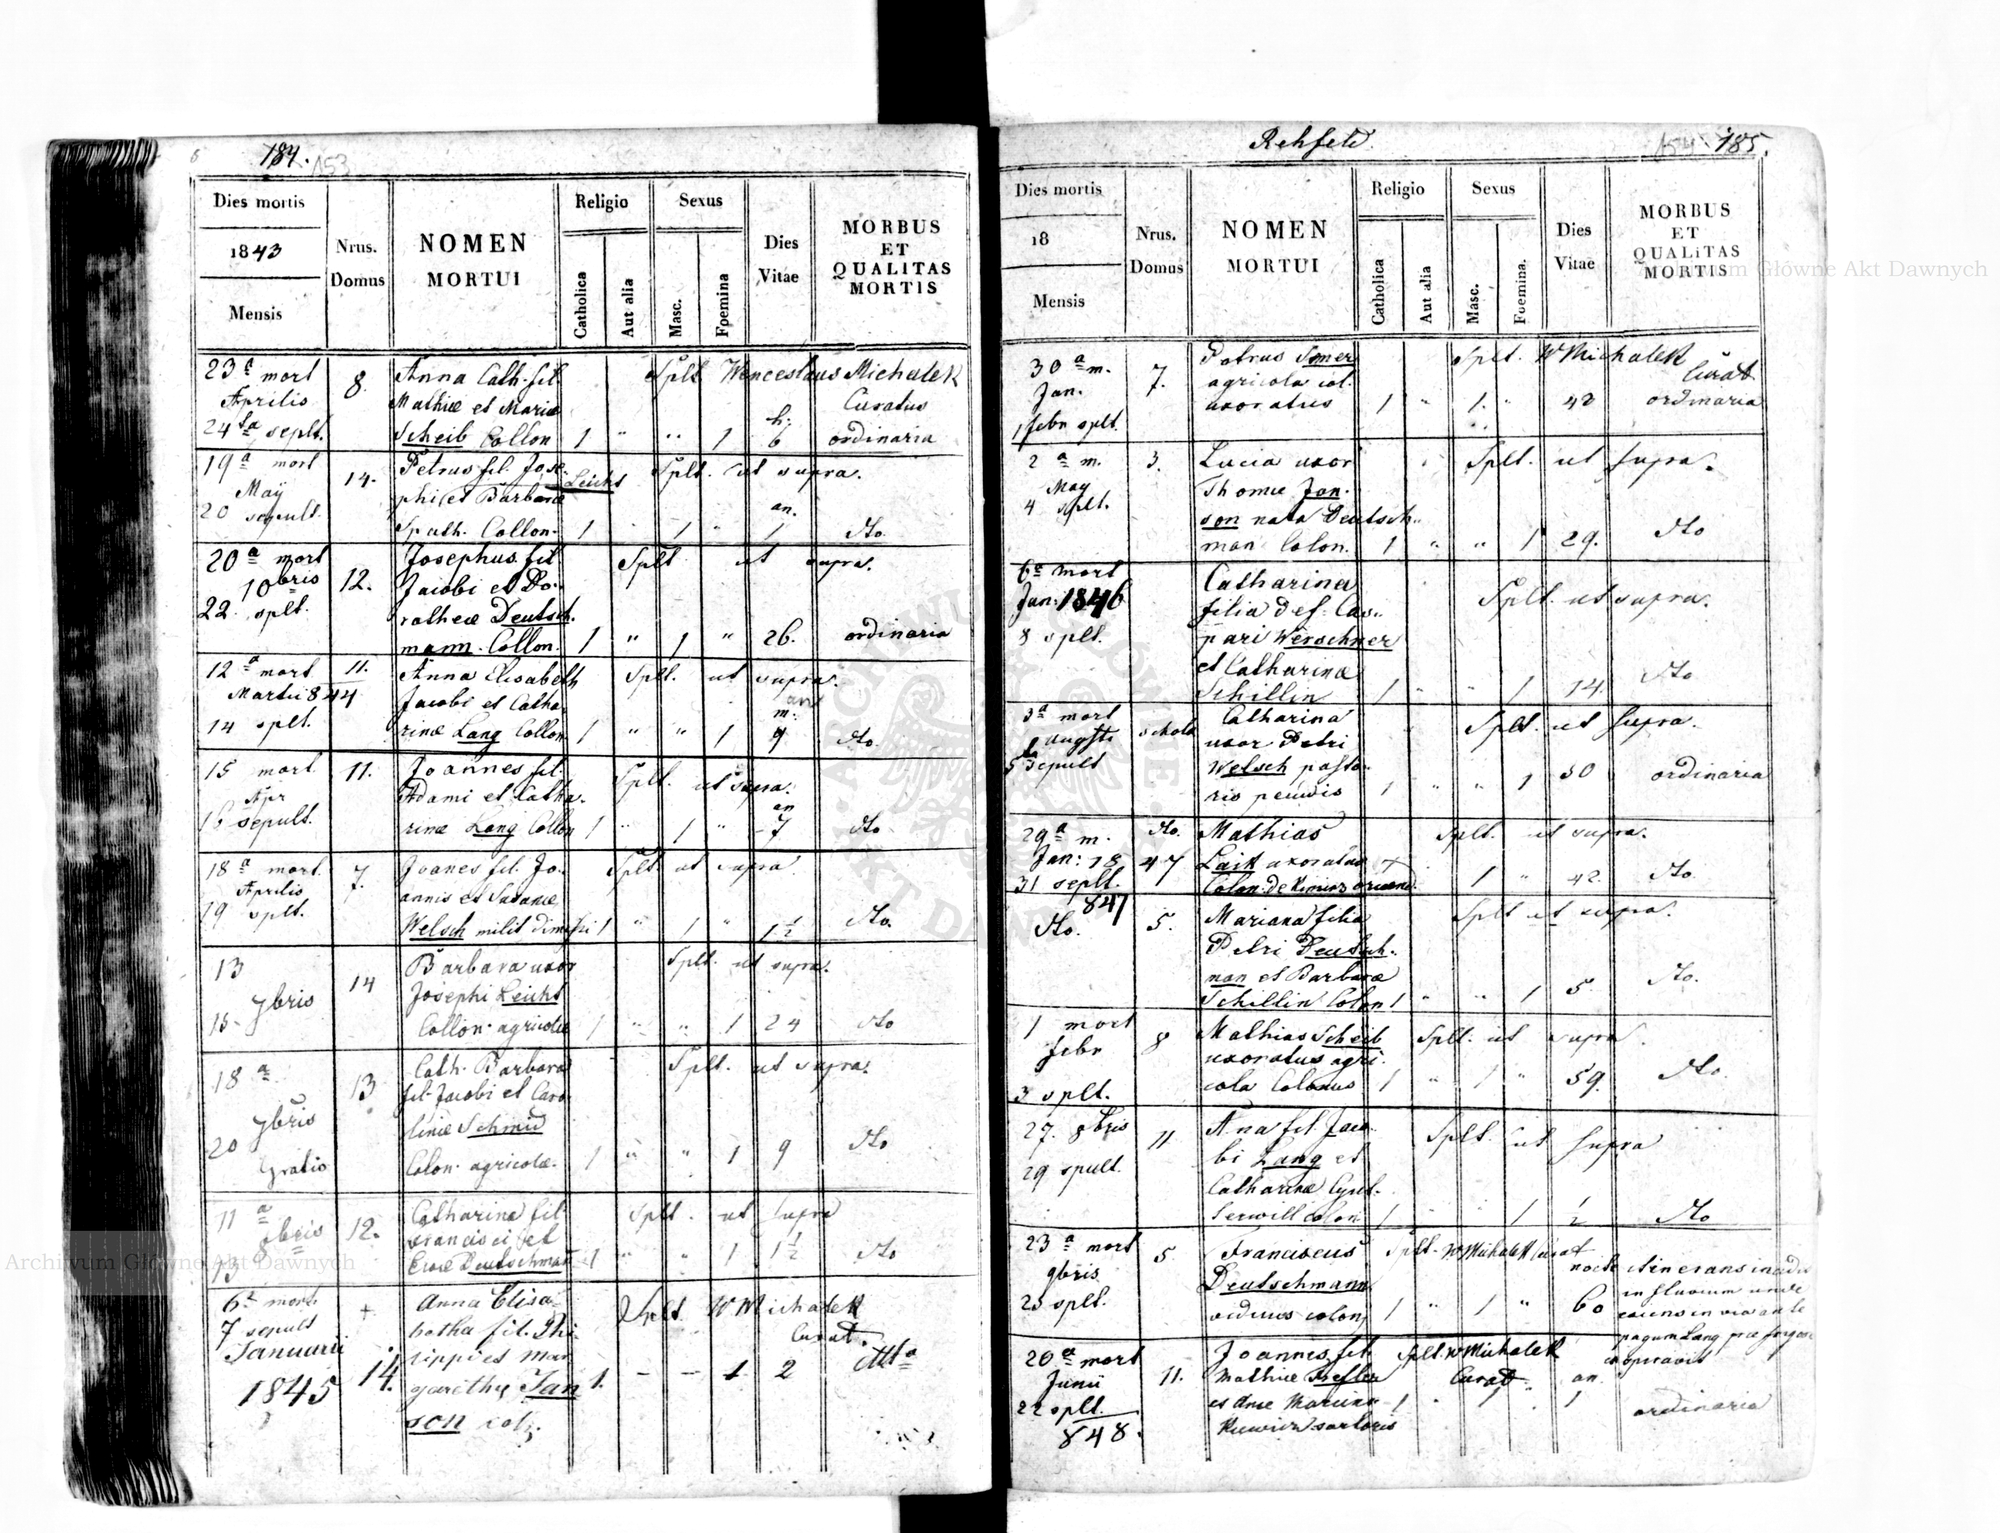 184.
153
Dies mortis
1843
Mensis
Nrus.
Domus
NOMEN
MORTUI
Religio
Catholica
Aut alia
Sexus
Masc.
Foemina
Dies
Vitae
MORBUS
ET
QUALITAS
MORTIS
23a mort
Aprilis
24ta seplt.
8.
Anna Cath. fil
Mathiæ et Mariæ
Scheib Collon
1 " " 1
h.
6
Splt Wenceslaus Michalek
Curatus
ordinaria
19a mort
May
20 sepult.
14.
Petrus fil. Jose-
phi et Barbaræ Leicht
Spath. Collon.
1 " 1 "
an.
1
Splt. ut supra.
dto
20a mort
10bris
22. splt.
12.
Josephus fil.
Jacobi et Do-
rotheæ Deutsch-
mann. Collon.
1 " 1 " 26.
Splt ut supra.
ordinaria
12a mort
Martii 844
14 splt.
11.
Anna Elisabeth
Jacobi et Catha-
rinæ Lang Collon
1 " " 1
m.
9
Splt. ut supra.
dto.
15 mort.
Apr
16 sepult.
11.
Joannes fil.
Adami et Catha-
rinæ Lang Collon
1 " 1 "
an
7
Splt. ut supra.
dto
18a mort.
Aprilis
19 splt.
7.
Joanes fil. Jo-
annis et Susanæ
Welsch milit dimissi
1 " 1 " 1 1/2
Splt. ut supra.
dto.
13
7bris
15-
14
Barbara uxor
Josephi Leicht
Collon. agricolæ
1 " " 1 24
Splt. ut supra.
dto
18a
7bris
20
Gratis
13
Cath. Barbara
fil. Jacobi et Caro-
linæ Schmid
Colon. agricolæ.
1 " " 1 9
Splt. ut supra.
dto
11a
8bris
13
12.
Catharina fil.
Francisci et
Evæ Deutschman
1 " " 1 1 1/2
Splt. ut supra
dto
6a mort.
7 sepult
Januarii
1845
+
14.
Anna Elisa-
betha fil. Phi-
lippi et Mar-
garethæ Jan
son col.
1. — — 1 2
Splt W Michalek
Curat.
Rehfeld.
154
185.
Dies mortis
18
Mensis
Nrus.
Domus
NOMEN
MORTUI
Religio
Catholica
Aut alia
Sexus
Masc.
Foemina.
Dies
Vitae
MORBUS
ET
QUALITAS
MORTIS
30a m.
Jan.
1 febr splt.
7.
Petrus
agricola col.
uxoratus
1 " 1. " 42
Splt. W Michalek
Curat
ordinaria
2a m.
May
4 splt.
3.
Lucia uxor
Thomæ Jan-
son nata Deutsch-
man Colon.
1 " " 1 29.
Splt. ut supra.
dto
6a mort
Jan. 1846
8 splt.
Catharina
filia def. Cas-
pari Werschner
et Catharinæ
Schillin
1 " " 1 14.
Splt. ut supra.
dto
3a mort
Augsti
5 sepult
schola
Catharina
uxor Petri
Welsch pasto-
ris
1 " " 1 50
Splt. ut supra.
ordinaria
29a m.
Jan:
31 seplt.
847
dto.
47
Mathias
Laik uxoratus
Colon. de
1 " 42.
Splt. ut supra.
dto
dto.
5.
Mariana filia
Petri Deutsch-
man et Barbaræ
Schillin Colon
1 " " 1 5
Splt ut supra.
dto.
1 mort
febr
3 splt.
8
Mathias Scheib
uxoratus agri-
cola Colonus
1 " 1 " 59.
Splt. ut supra.
dto.
27. 8bris
29 spult.
11
Ana fil. Jaco-
bi Lang et
Catharinæ
colon
1 " " 1 1/2
Splt. ut supra
dto
23a mort
9bris
25 splt.
5
Franciscus
Deutschmann
viduus colon,
1 " 1 " 60
Splt. W Michalek Curat
nocte itinerans incidit
in fluvium unde
exiens in via ante
pagum Lang præ frigore
expiravit
20a mort
Junii
22 splt.
848.
11.
Joannes fil
Mathiæ
et Anæ Mariæ
sartoris
1 " 1 "
an.
1
Splt. W Michalek
Curat
ordinaria
Archiwum Główne Akt Dawnych
Archiwum Główne Akt Dawnych
ARCHIWUM GŁÓWNE AKT DAWNYCH